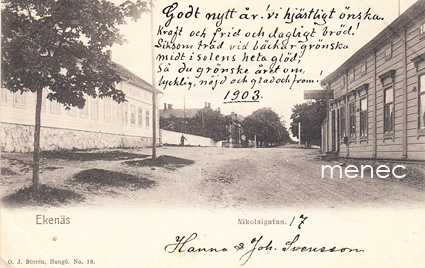 Godt nytt år! vi hjästligt önska.
Kraft och frid och dagligt bröd!
Siksom träd vid bäckar grönska
midt i solens heta glöd,
Så du grönske året om,
lycklig, nöjd och glad och from!
1903.
menec
Ekenäs
Nikolaigatan. 17
Hanna & Joh. Svensson
O. J. Börrén, Hangö. No. 19.